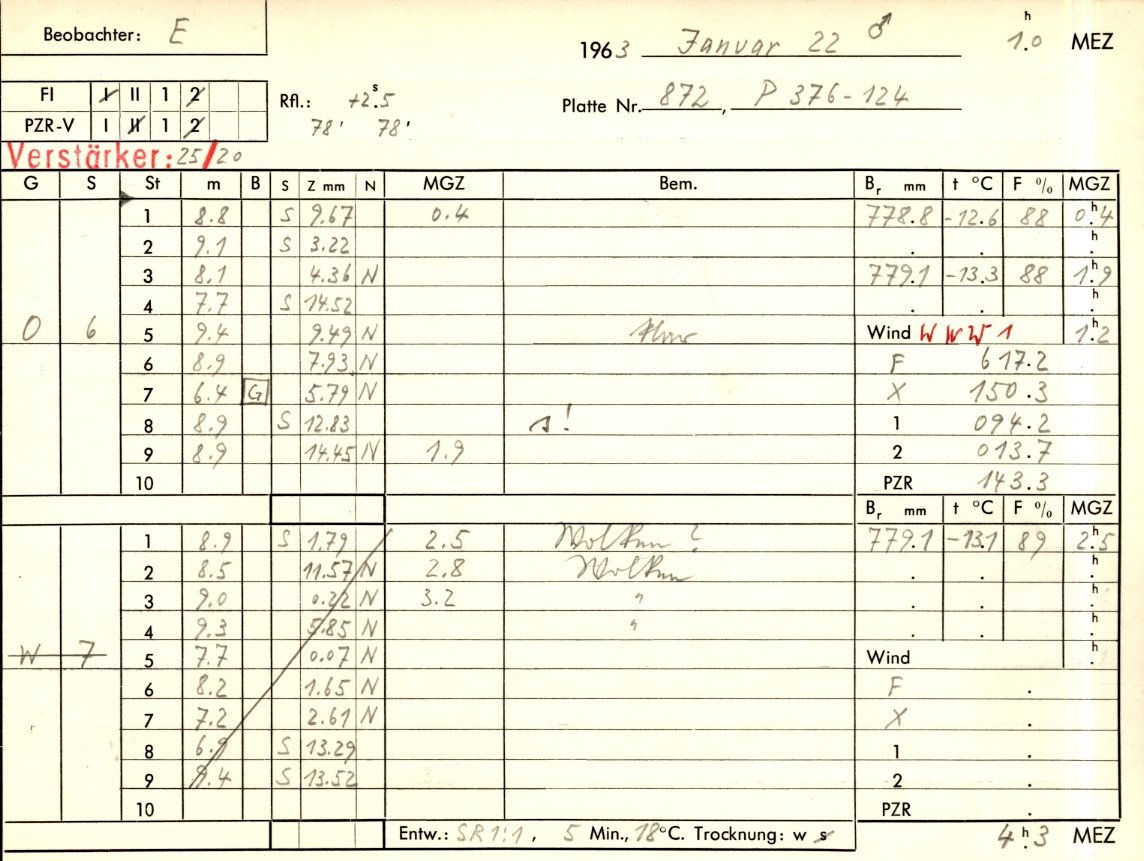 Beobachter: E
1963 Januar 22 ♂ 1.0 h MEZ
FI I II 1 2
Rfl.: +2.5 s
Platte Nr. 872, P 376-124
PZR-V I II 1 2
78' 78'
Verstärker: 25/20
G S St m B S Z mm N MGZ Bem. Br mm t °C F % MGZ
1 8.8 S 9.67 0.4 778.8 -12.6 88 0.4 h
2 9.1 S 3.22 . . h .
3 8.1 4.36 N 779.1 -13.3 88 1.9 h
4 7.7 S 14.52 . . h .
O 6 5 9.4 9.49 N Wind W W W 1 1.2 h
6 8.9 7.93 N F 617.2
7 6.4 G 5.79 N X 150.3
8 8.9 S 12.83 s! 1 094.2
9 8.9 14.45 N 1.9 2 013.7
10 PZR 143.3
Br mm t °C F % MGZ
1 8.9 S 1.79 2.5 Wolken ? 779.1 -13.1 89 2.5 h
2 8.5 11.57 N 2.8 Wolken . . h .
3 9.0 0.22 N 3.2 " . . h .
4 9.3 5.85 N " . . h .
W 7 5 7.7 0.07 N Wind h .
6 8.2 1.65 N F .
7 7.2 2.61 N X .
8 6.9 S 13.29 1 .
9 9.4 S 13.52 2 .
10 PZR .
Entw.: SR 1:1, 5 Min., 18°C. Trocknung: w s 4.3 h MEZ